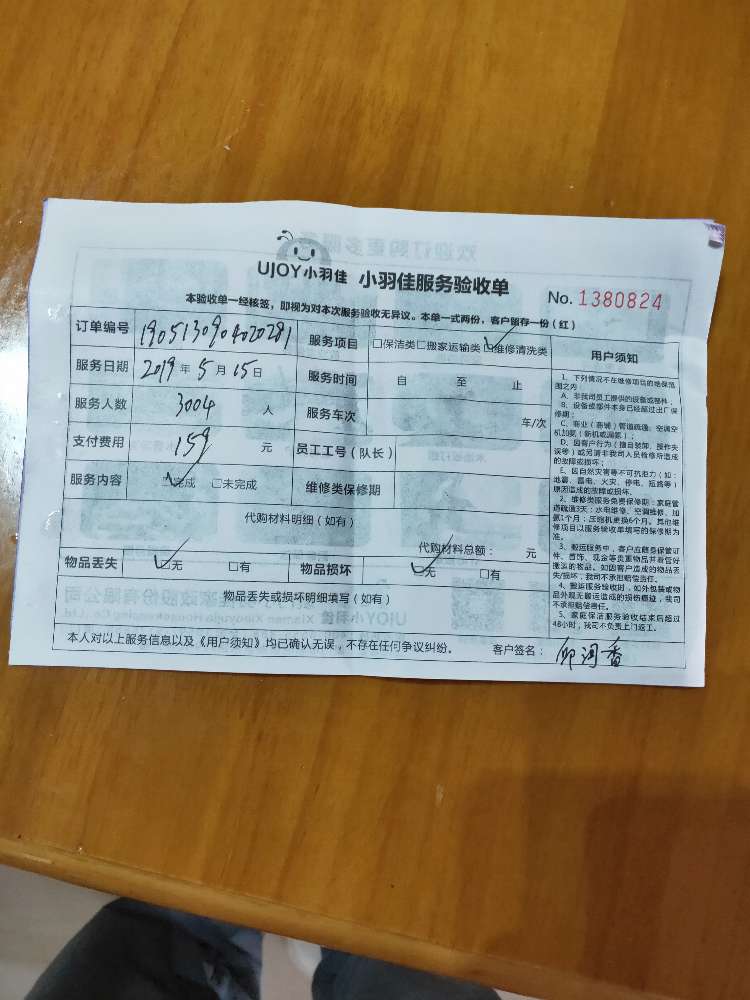 UJOY小羽佳 小羽佳服务验收单
No. 1380824
本验收单一经核签，即视为对本次服务验收无异议。本单一式两份，客户留存一份（红）
订单编号 1905130904020281 服务项目 □保洁类□搬家运输类☑维修清洗类
服务日期 2019年5月15日 服务时间 自 至 止
服务人数 3004 人 服务车次 车/次
支付费用 159 元 员工工号（队长）
服务内容 ☑完成 □未完成 维修类保修期
代购材料明细（如有）
代购材料总额： 元
物品丢失 ☑无 □有 物品损坏 ☑无 □有
物品丢失或损坏明细填写（如有）
本人对以上服务信息以及《用户须知》均已确认无误，不存在任何争议纠纷。 客户签名：
用户须知
1、下列情况不在维修项目的质保范
围之内：
A、非我司员工提供的设备或部件；
B、设备或部件本身已经超过出厂保
修期；
C、商业（商铺）管道疏通；空调空
机加氨（新机或漏氨）；
D、因客户行为（擅自装卸、操作失
误等）或另请非我司人员检修所造成
的故障或损坏；
E、因自然灾害等不可抗拒力（如：
地震、雷电、火灾、停电、短路等）
原因造成的故障或损坏。
2、维修类服务免费保修期：家庭管
道疏通3天；水电维修、空调维修、加
氨1个月；压缩机更换6个月。其他维
修项目以服务验收单填写的保修期为
准。
3、搬运服务中，客户应随身保管证
件、首饰、现金等贵重物品并看管好
搬运的物品。如因客户造成的物品丢
失/损坏，我司不承担赔偿责任。
4、搬运服务验收时，如外包装或物
品外观无搬运造成的损伤痕迹，我司
不承担赔偿责任。
5、家庭保洁服务验收结束后超过
48小时，我司不负责上门返工。